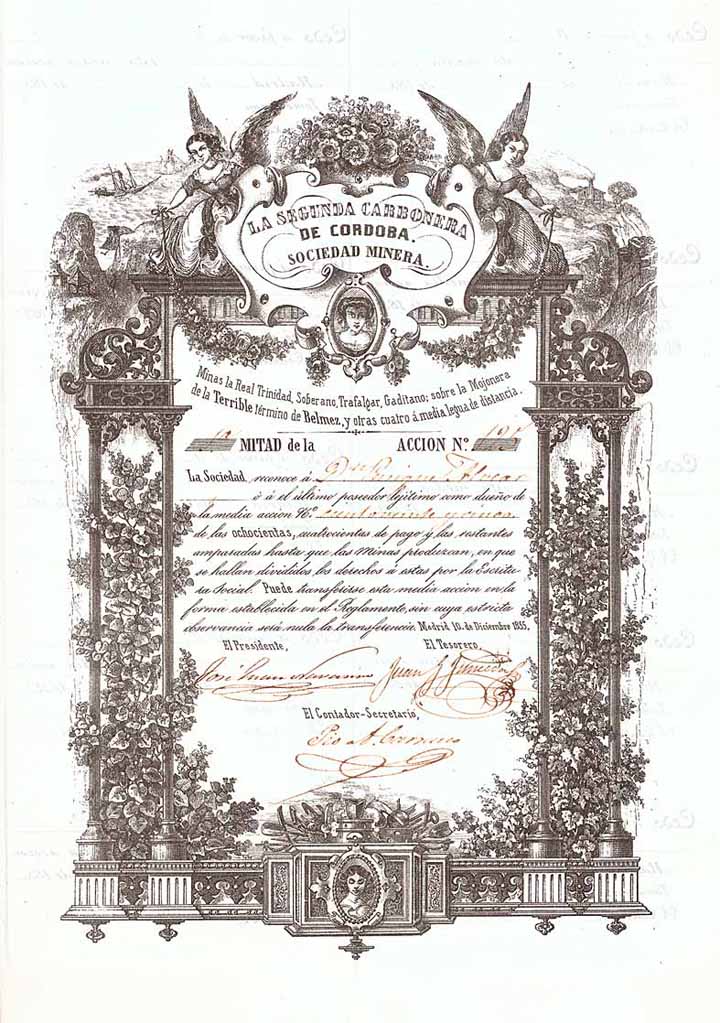 LA SEGUNDA CARBONERA
DE CORDOBA.
SOCIEDAD MINERA.
Minas la Real Trinidad, Soberano, Trafalgar, Gaditano; sobre la Mojonera
de la Terrible término de Belmez, y otras cuatro á media legua de distancia.
MITAD de la ACCION Nº.
La Sociedad reconoce á Dn Enrique
ó á el último poseedor legítimo como dueño de
la media accion Nº.
de las ochocientas, cuatrocientas de pago y las restantes
amparadas hasta que las Minas produzcan, en que
se hallan divididos los derechos á estas por la Escritu-
ra Social. Puede transferirse esta media accion en la
forma establecida en el Reglamento, sin cuya estricta
observancia será nula la transferencia. Madrid 10. de Diciembre 1855.
El Presidente, El Tesorero,
José Juan Navarro Juan J. Jimenez
El Contador-Secretario,
Pio A. Carrasco